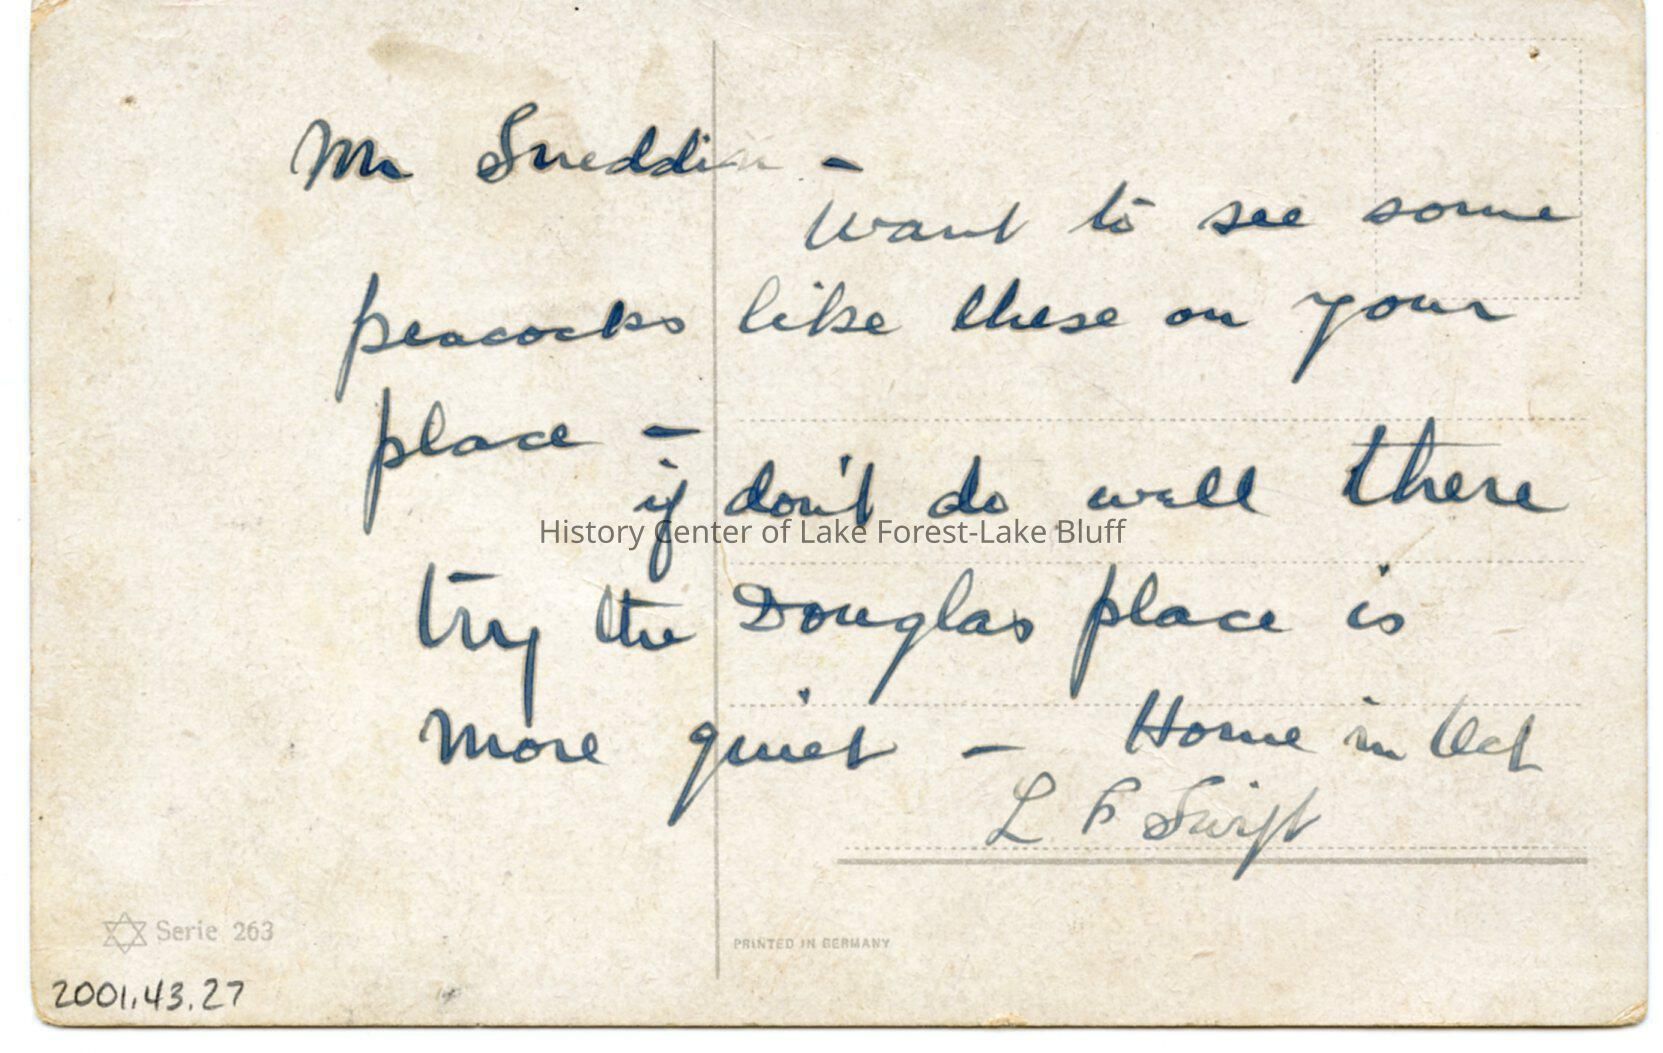 Mr Sneddin -
Want to see some
peacocks like these on your
place -
if don't do well there
History Center of Lake Forest-Lake Bluff
try the Douglas place is
more quiet - Home in Oct
L F Swift
Serie 263
PRINTED IN GERMANY
2001.43.27